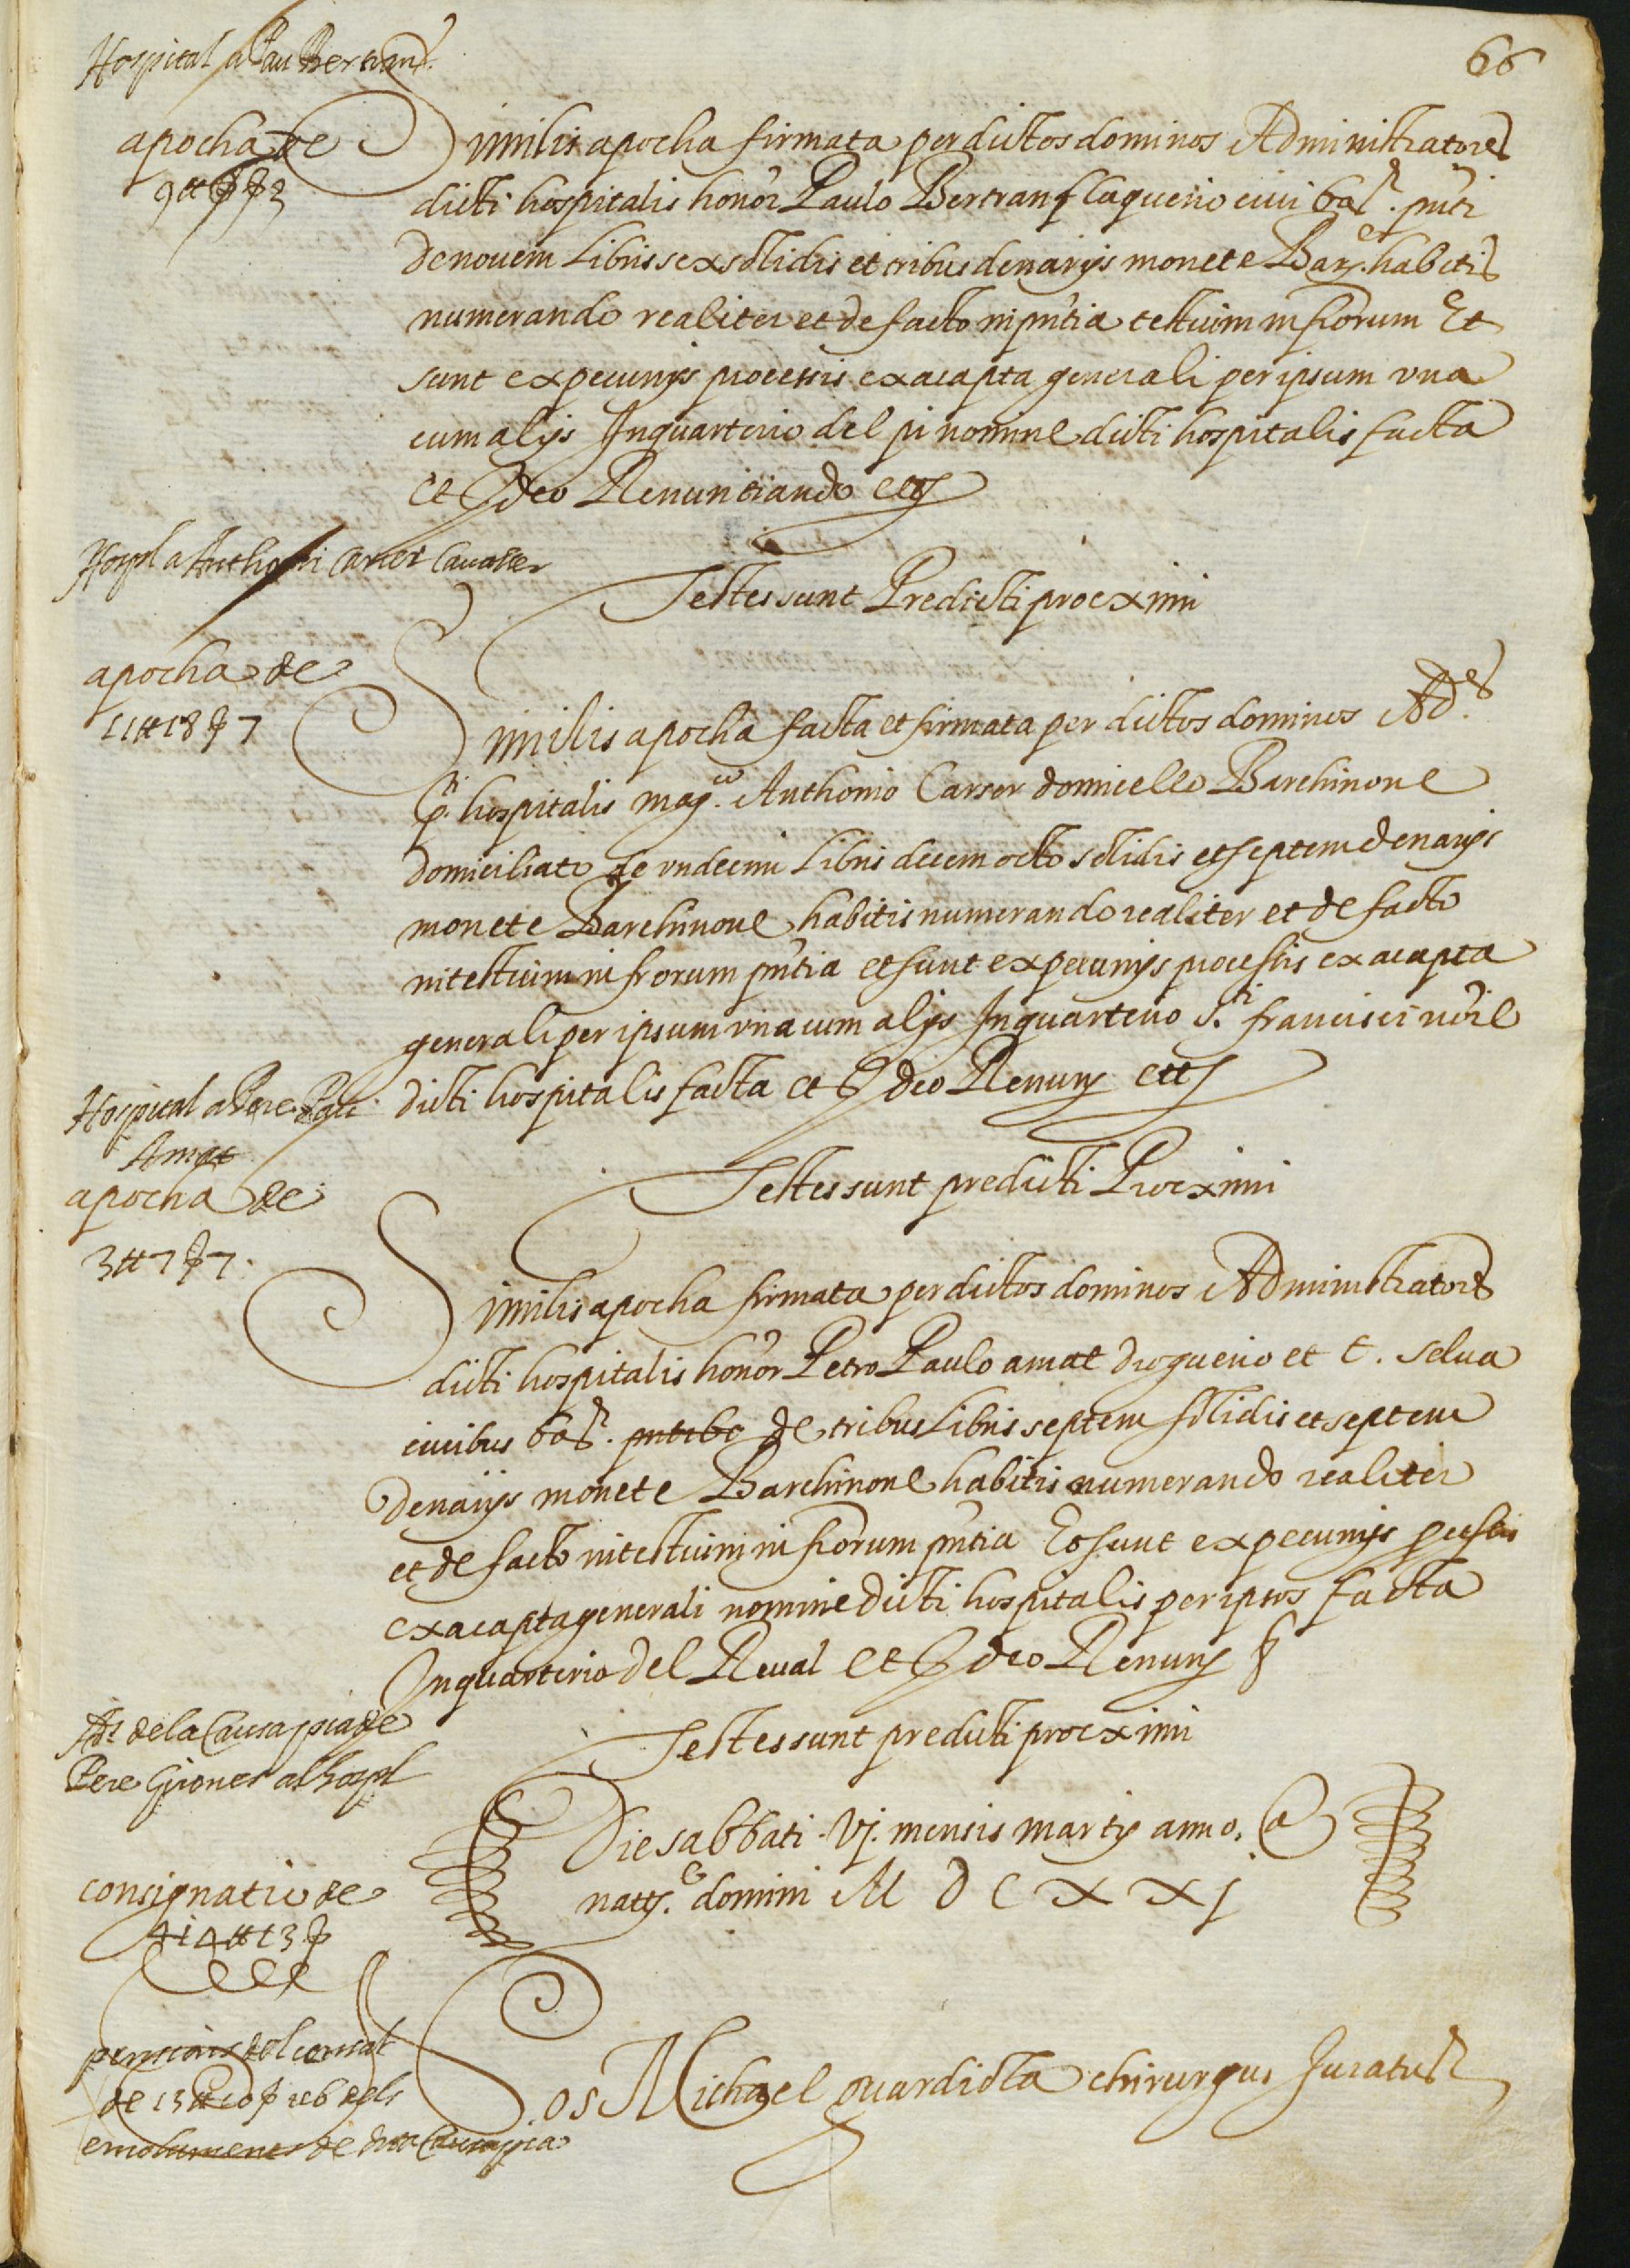 66
Hospital a Pau Bertran
apocha de
Similis apocha firmata per dictos dominos Administratores
dicti hospitalis honor Paulo Bertran flaquerio civi bar. pnti
de novem libris sex solidis et tribus denarijs monete Bar. habitis
numerando realiter et de facto in pntia testium infrorum Et
sunt ex pecunijs processis ex acapta generali per ipsum una
cum alijs In quarterio del pi nomine dicti hospitalis facta
et Ideo Renuntiando etc
Testes sunt Predicti proximi
Hospl a Anthoni Carser Cavaller
apocha de
11 ₶ 18 ß 7
Similis apocha facta et firmata per dictos dominos Ad.es
p. hospitalis mag.co Anthonio Carser domicello Barchinone
domiciliato de undecim libris decem octo solidis et septem denarijs
monete Barchinone habitis numerando realiter et de facto
in testium infrorum pntia et sunt ex pecunijs processis ex acapta
generali per ipsum una cum alijs In quarterio S.ti francisci
dicti hospitalis facta et Ideo Renun etc
Testes sunt predicti Proximi
Hospital a Pere Pau
Amat
apocha de
3 ₶ 7 ß 7
Similis apocha firmata per dictos dominos Administratores
dicti hospitalis honor Petro Paulo amat droguerio et t. selva
civibus bar. de tribus libris septem solidis et septem
denarijs monete Barchinone habitis numerando realiter
et de facto in testium infrorum pntia Et sunt ex pecunijs
ex acapta generali nomine dicti hospitalis per ipsos facta
In quarterio del Raval et Ideo Renun
Testes sunt predicti proximi
Ads de la Causa pia de
Pere Girones al hospl
consignatio de
414 ₶ 13 ß
pensions del censal
de 13 ₶ 10 ß
emoluments de dita Causa pia
Die sabbati vj. mensis martij anno a
natte. domini M D C X X j
Nos Michael guardiola chirurgus Juratus